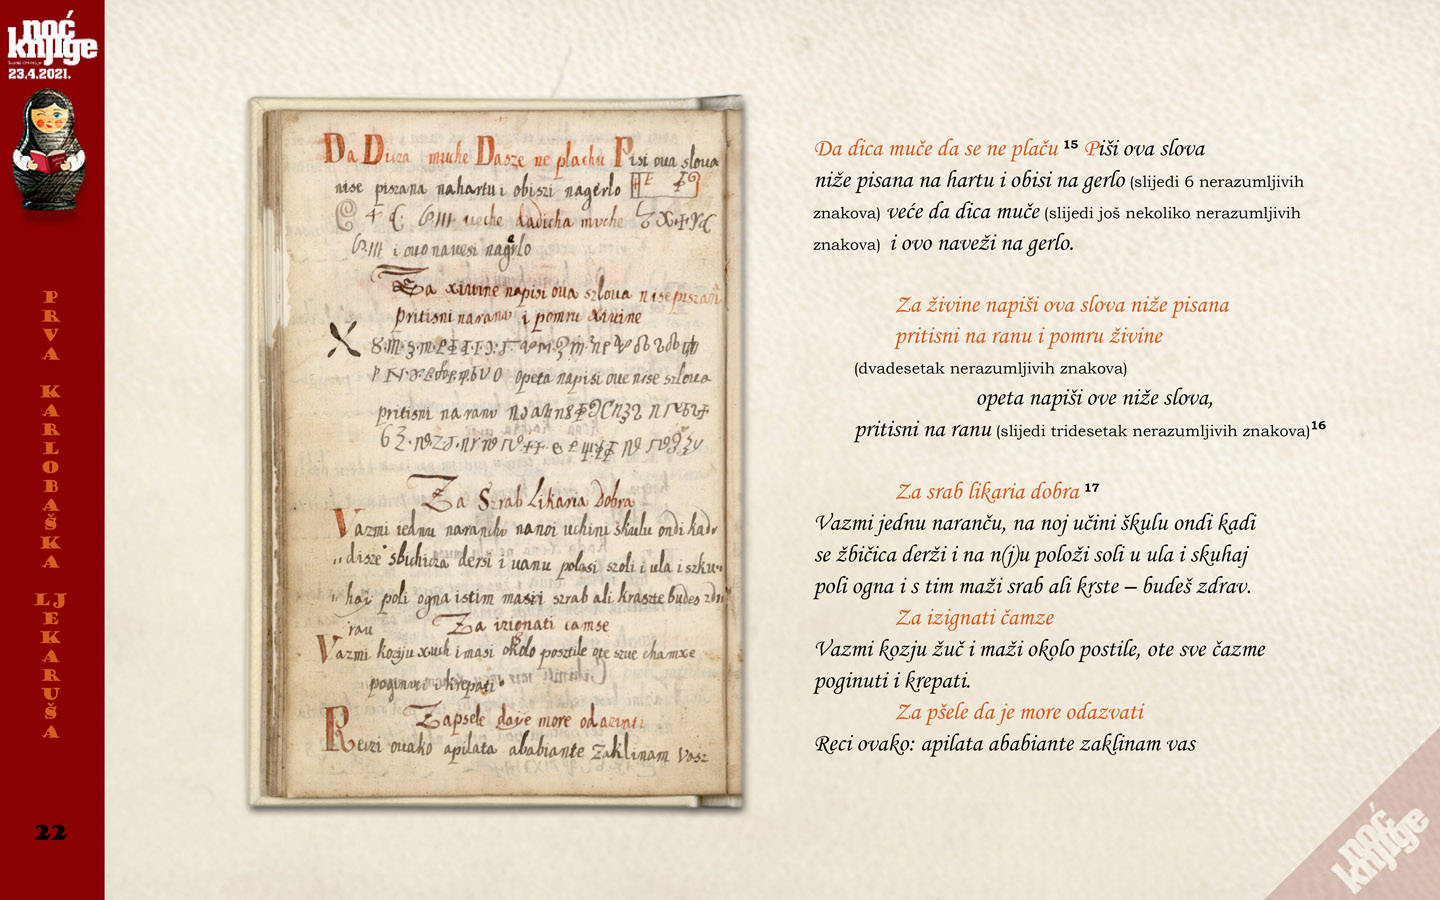 noć
knjige
23.4.2021.
PRVA KARLOBAŠKA LJEKARUŠA
22
Da Diza muche Dasze ne plachu Pisi oua sloua
nise piszana nahartu i obiszi nagerlo
ueche dadicha muche
i ouo nauesi nagerlo
Za xiuine napisi oua szloua nise piszana
pritisni naranu i pomru xiuine
opeta napisi oue nise szloua
pritisni na ranu
Za Szrab likaria dobra
Vazmi iednu narancho nanoi uchini skulu ondi kadi
disze sbichicza dersi i uanu polosi szoli i ula i szku
hai poli ogna istim masi szrab ali kraszte budes zd
rau
Za izignati camse
Vazmi kozju xuch i masi okolo posztile ote szue chamxe
poginuti i krepati
Zapsele daje more odazuati
Reczi ouako apilata ababiante zaklinam vasz
Da dica muče da se ne plaču 15 Piši ova slova
niže pisana na hartu i obisi na gerlo (slijedi 6 nerazumljivih
znakova) veće da dica muče (slijedi još nekoliko nerazumljivih
znakova) i ovo naveži na gerlo.
Za živine napiši ova slova niže pisana
pritisni na ranu i pomru živine
(dvadesetak nerazumljivih znakova)
opeta napiši ove niže slova,
pritisni na ranu (slijedi tridesetak nerazumljivih znakova)16
Za srab likaria dobra 17
Vazmi jednu naranču, na noj učini škulu ondi kadi
se žbičica derži i na n(j)u položi soli u ula i skuhaj
poli ogna i s tim maži srab ali krste – budeš zdrav.
Za izignati čamze
Vazmi kozju žuč i maži okolo postile, ote sve čazme
poginuti i krepati.
Za pšele da je more odazvati
Reci ovako: apilata ababiante zaklinam vas
noć
knjige